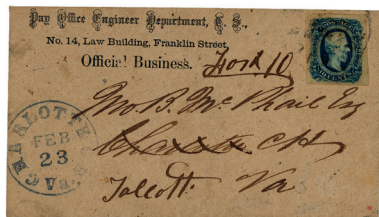 Pay Office Engineer Department, C. S.,
No. 14, Law Building, Franklin Street,
Official Business.
Jno B. McPhail Esq
Charlotte CH
Talcott. Va
CHARLOTTE C.H. Va
FEB
23